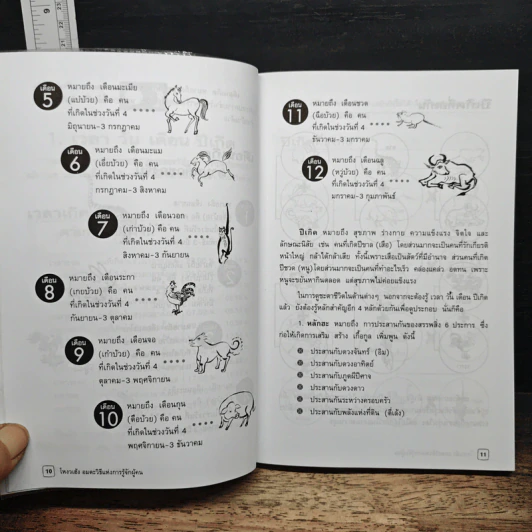 เดือน 5 หมายถึง เดือนมะเมีย
(แปบ้วย) คือ คน
ที่เกิดในช่วงวันที่ 4
มิถุนายน-3 กรกฎาคม
เดือน 6 หมายถึง เดือนมะแม
(เอี่ยบ้วย) คือ คน
ที่เกิดในช่วงวันที่ 4
กรกฎาคม-3 สิงหาคม
เดือน 7 หมายถึง เดือนวอก
(เก่าบ้วย) คือ คน
ที่เกิดในช่วงวันที่ 4
สิงหาคม-3 กันยายน
เดือน 8 หมายถึง เดือนระกา
(เกยบ้วย) คือ คน
ที่เกิดในช่วงวันที่ 4
กันยายน-3 ตุลาคม
เดือน 9 หมายถึง เดือนจอ
(เก๋าบ้วย) คือ คน
ที่เกิดในช่วงวันที่ 4
ตุลาคม-3 พฤศจิกายน
เดือน 10 หมายถึง เดือนกุน
(ตือบ้วย) คือ คน
ที่เกิดในช่วงวันที่ 4
พฤศจิกายน-3 ธันวาคม
10 โหงวเฮ้ง อมตะวิธีแห่งการรู้จักผู้คน
เดือน 11 หมายถึง เดือนชวด
(ฉือบ้วย) คือ คน
ที่เกิดในช่วงวันที่ 4
ธันวาคม-3 มกราคม
เดือน 12 หมายถึง เดือนฉลู
(หงู่บ้วย) คือ คน
ที่เกิดในช่วงวันที่ 4
มกราคม-3 กุมภาพันธ์
ปีเกิด หมายถึง สุขภาพ ร่างกาย ความแข็งแรง จิตใจ และ
ลักษณะนิสัย เช่น คนที่เกิดปีขาล (เสือ) โดยส่วนมากจะเป็นคนที่รักเกียรติ
หน้าใหญ่ กล้าได้กล้าเสีย ทั้งนี้เพราะเสือเป็นสัตว์ที่มีอำนาจ ส่วนคนที่เกิด
ปีชวด (หนู) โดยส่วนมากจะเป็นคนที่ทำอะไรเร็ว คล่องแคล่ว อดทน เพราะ
หนูจะขยันหากินตลอด แต่สุขภาพไม่ค่อยแข็งแรง
ในการดูชะตาชีวิตในด้านต่างๆ นอกจากจะต้องรู้ เวลา วัน เดือน ปีเกิด
แล้ว ยังต้องรู้หลักสำคัญอีก 4 หลักด้วยกันเพื่อดูประกอบ นั่นก็คือ
1. หลักฮะ หมายถึง การประสานกันของสรรพสิ่ง 6 ประการ ซึ่ง
ก่อให้เกิดการเสริม สร้าง เกื้อกูล เพิ่มพูน ดังนี้
ประสานกับดวงจันทร์ (อิม)
ประสานกับดวงอาทิตย์
ประสานกับภูตผีปีศาจ
ประสานกับดวงดาว
ประสานกันระหว่างครอบครัว
ประสานกับพลังแห่งที่ดิน (ตี่เล้ง)
11
9